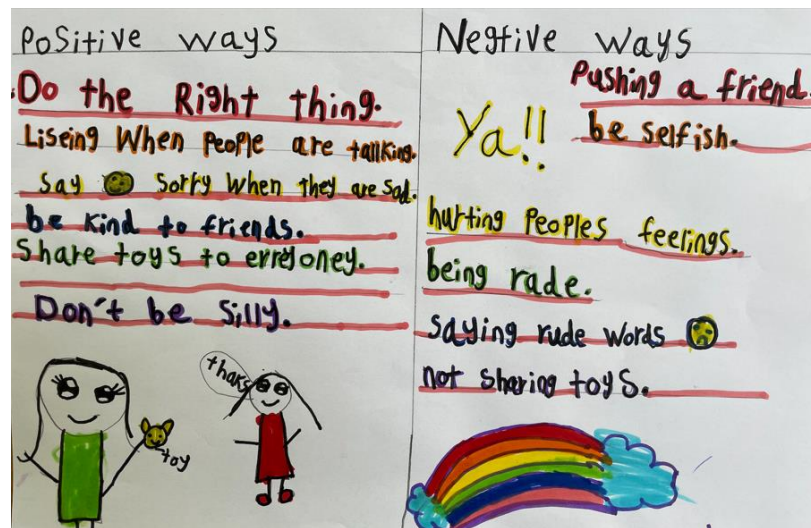 Positive ways
Do the Right thing.
Liseing When People are tallking.
Say sorry when they are sad.
be kind to friends.
Share toys to erregoney.
Don't be silly.
thaks
toy
Negtive ways
Pushing a friend.
Ya!!
be selfish.
hurting Peoples feelings.
being rade.
saying rude words
not sharing toys.